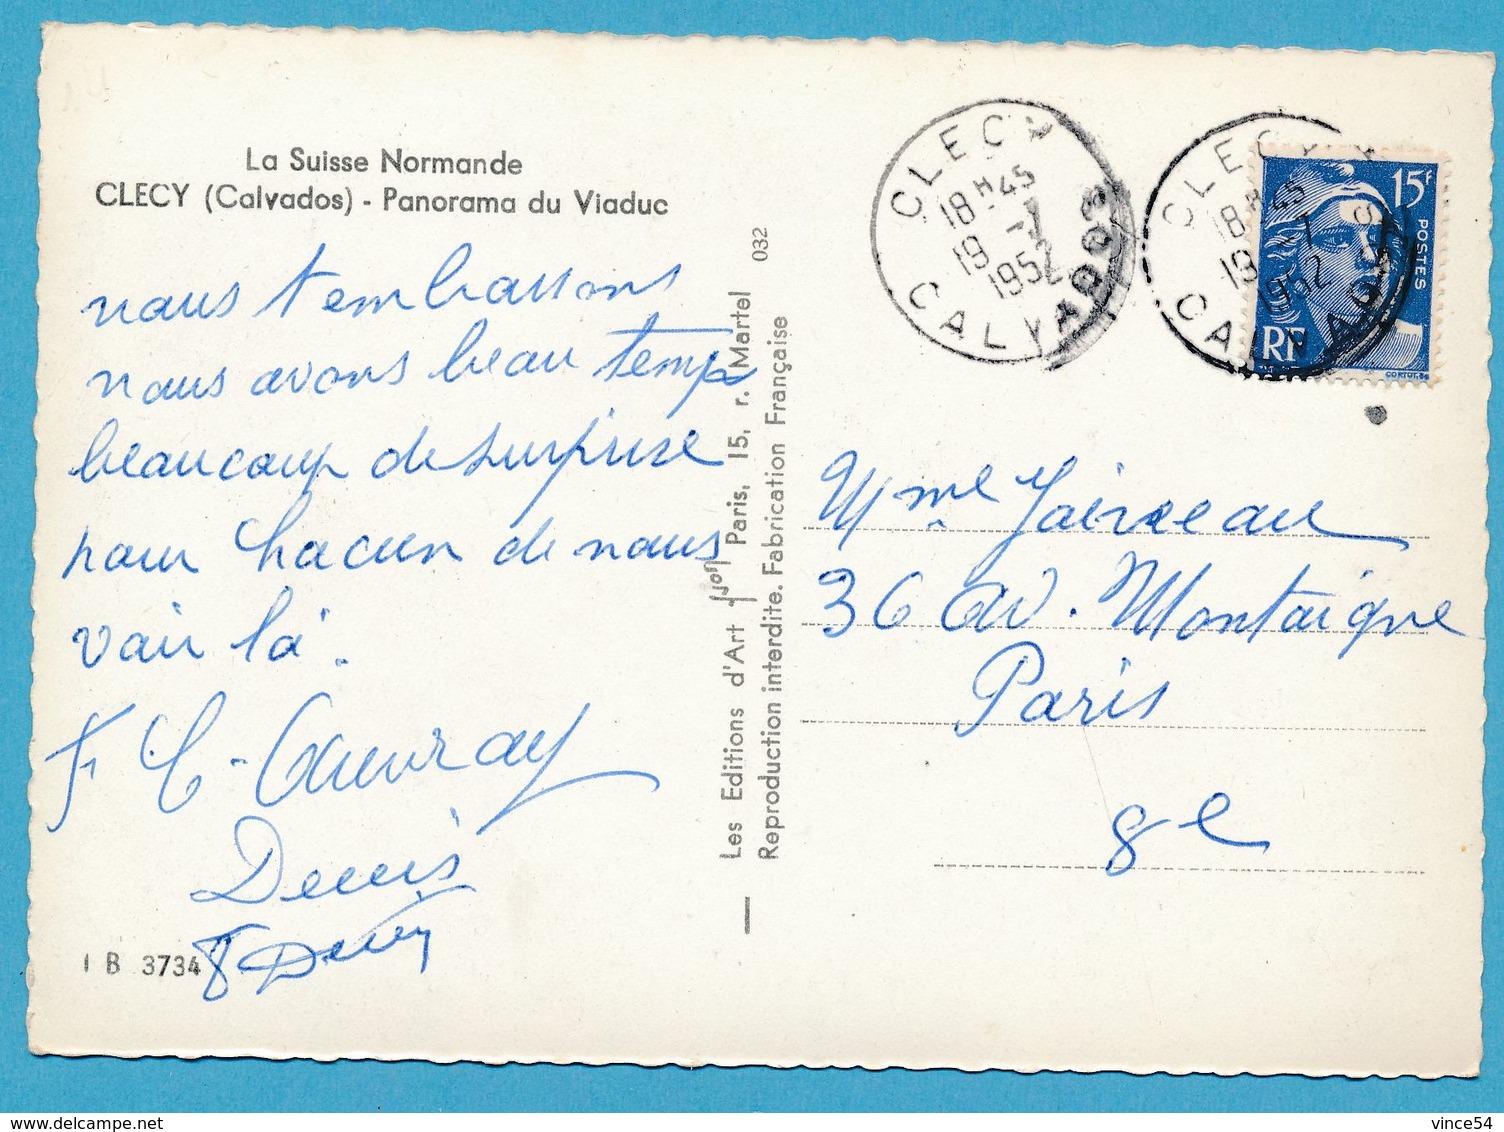 La Suisse Normande
CLECY (Calvados) - Panorama du Viaduc
nous t'embrassons
nous avons beau temps
beaucoup de surprise
pour chacun de nous
voir là.
Denis
I B 3734
Les Editions d'Art Yvon Paris, 15, r. Martel
Reproduction interdite. Fabrication Française
032
CLECY
18H45
19 -7
1952
CALVADOS
CLECY
18H45
19 -7
1952
CALVADOS
15F
POSTES
RF
Mme
36 av. Montaigne
Paris
8e
delcampe.net
vince54